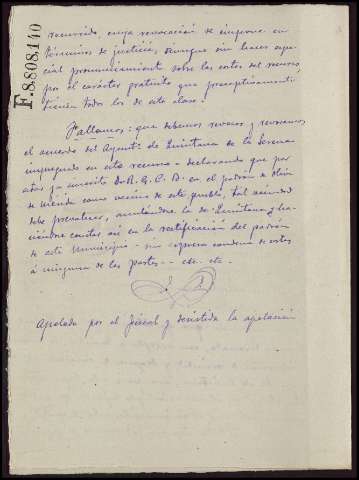 F.8.808.140
recurrido, cuya revocación se impone en
términos de justicia, aunque sin hacer espe-
cial pronunciamiento sobre las costas del recurso,
por el carácter gratuito que preceptivamente
tienen todos los de esta clase.
Fallamos: que debemos revocar y revocamos
el acuerdo del Ayuntº de Quintana de la Serena
impugnado en este recurso - declarando que por
estar ya inscrito D. R. G. C. D. en el padrón de Oliva
de Mérida como vecino de este pueblo, tal vecindad
debe prevalecer, anulándose la de Quintana y ha-
ciéndose constar así en la rectificación del padrón
de este Municipio - sin expresa condena de costas
á ninguna de las partes -- etc. etc.
Apelada por el Fiscal y desistida la apelación